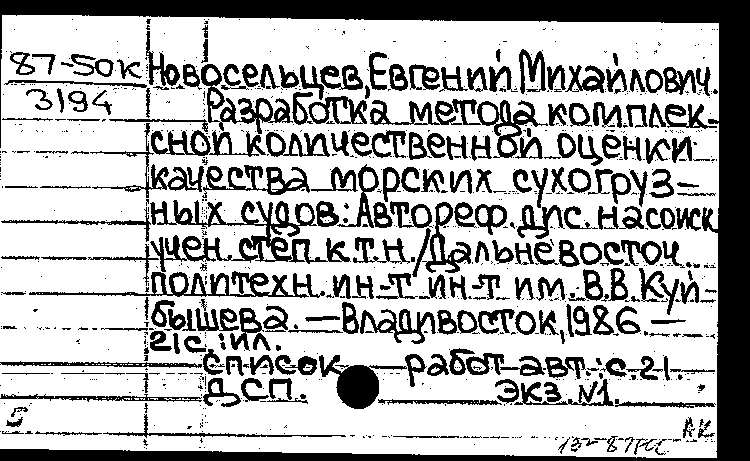 87-50К Новосельцев, Евгений Михайлович.
3194 Разработка метода комплек-
сной количественной оценки
качества морских сухогруз-
ных судов: Автореф. дис. на соиск
учен. степ. к.т.н. / Дальневосточ.
политехн. ин-т ин-т им. В.В. Куй-
бышева. — Владивосток, 1986. —
21с.: ил.
Список работ авт.: с. 21.
ДСП. Экз. №1.
АК